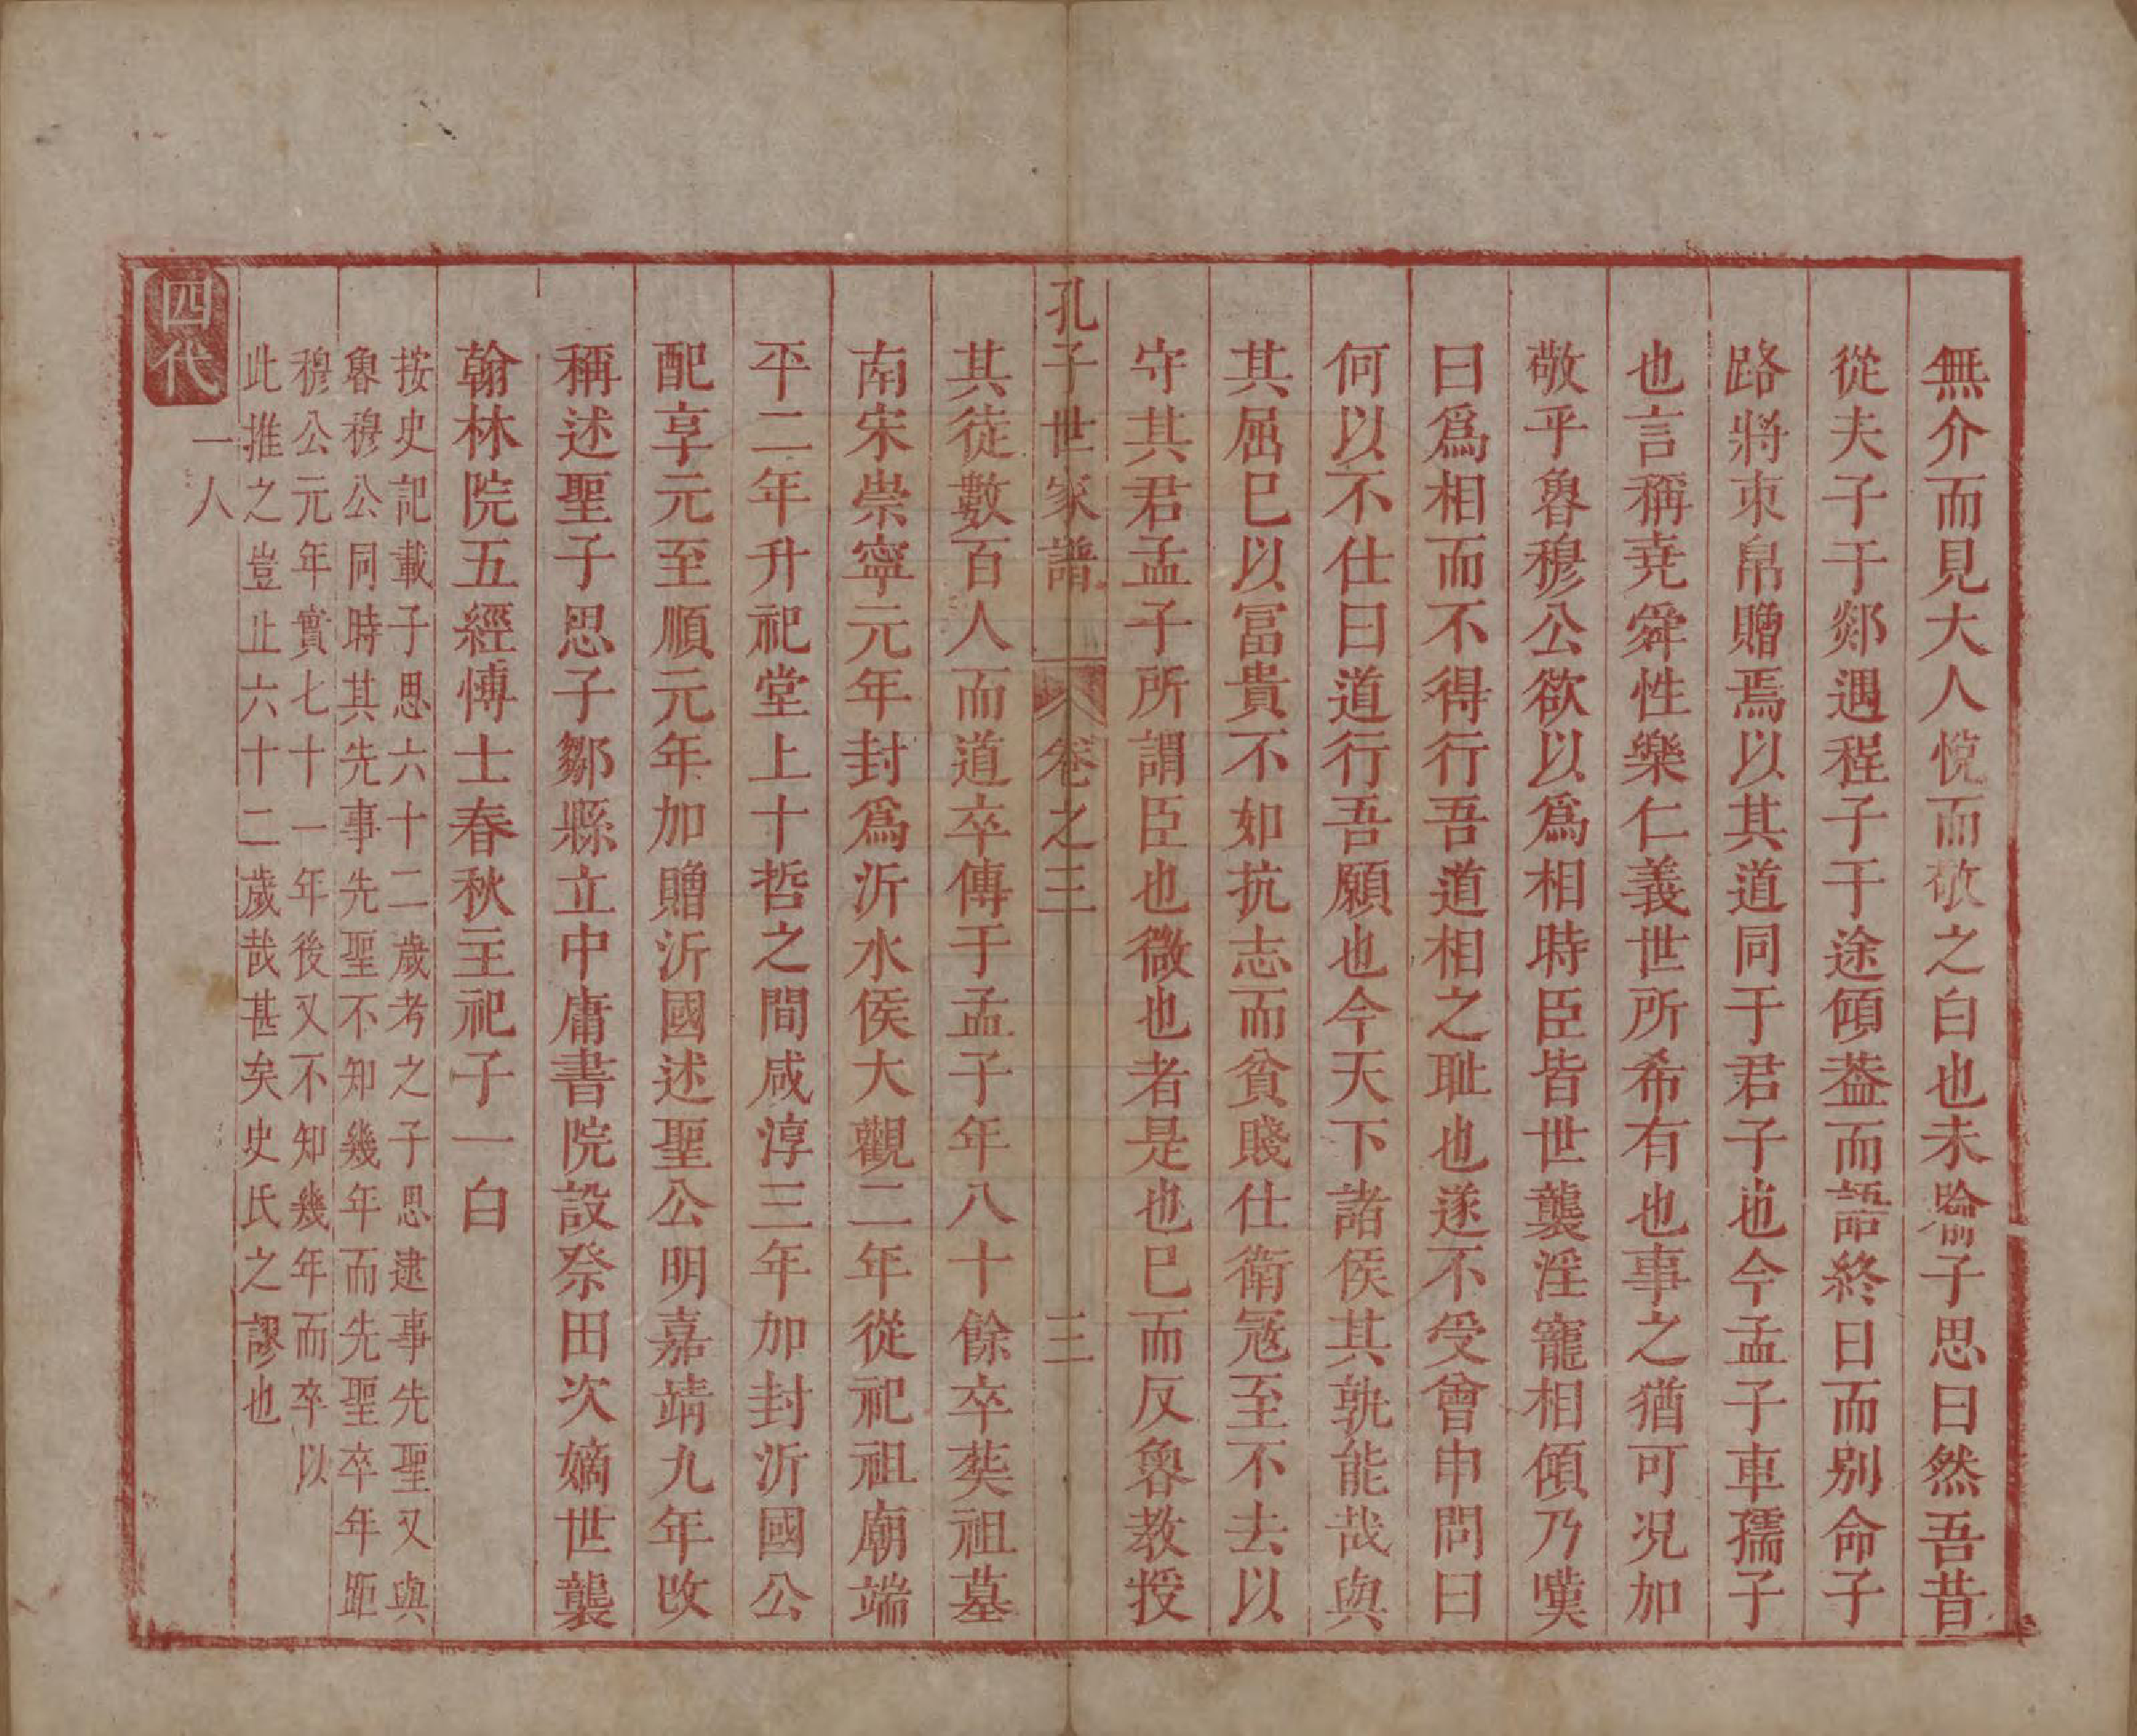 無介而見大人悅而敬之白也未喻子思曰然吾昔
從夫子于郯遇程子于途傾葢而語終日而別命子
路將束帛贈焉以其道同于君子也今孟子車孺子
也言稱堯舜性樂仁義世所希有也事之猶可况加
敬乎魯穆公欲以為相時臣皆世襲淫寵相傾乃嘆
曰爲相而不得行吾道相之耻也遂不受曾申問曰
何以不仕曰道行吾願也今天下諸侯其孰能哉與
其屈巳以冨貴不如抗志而貧賤仕衛寇至不去以
守其君孟子所謂臣也微也者是也巳而反魯教授
孔子世家譜 卷之三 三
其徒數百人而道卒傳于孟子年八十餘卒葬祖墓
南宋崇寧元年封爲沂水侯大觀二年從祀祖廟端
平二年升祀堂上十哲之間咸淳三年加封沂國公
配享元至順元年加贈沂國述聖公明嘉靖九年改
稱述聖子思子鄒縣立中庸書院設祭田次嫡世襲
翰林院五經博士春秋主祀子一白
按史記載子思六十二歲考之子思逮事先聖又與
魯穆公同時其先事先聖不知幾年而先聖卒年距
穆公元年實七十一年後又不知幾年而卒以
此推之豈止六十二歲哉甚矣史氏之謬也
四代
一人